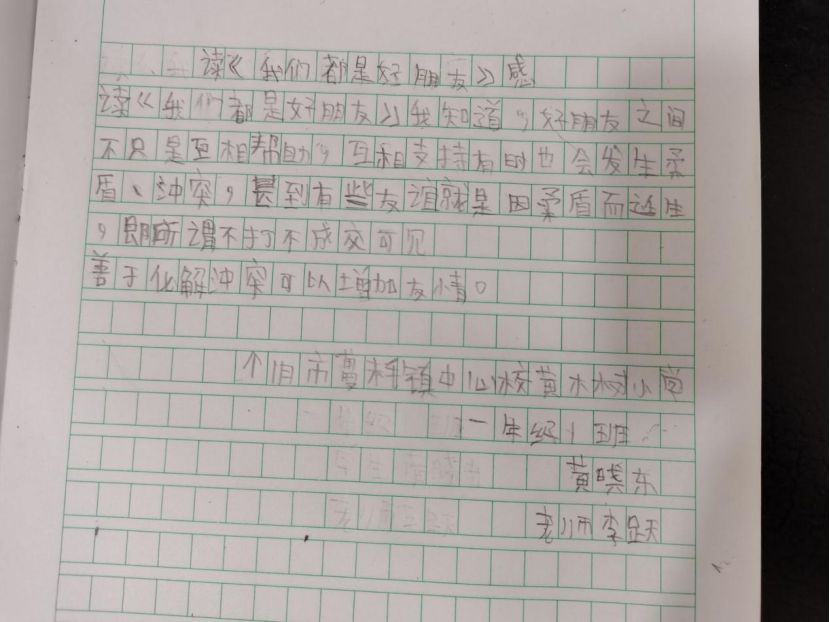 读《我们都是好朋友》感
读《我们都是好朋友》我知道，好朋友之间
不只是互相帮助，互相支持有时也会发生柔
盾、冲突，甚到有些友谊就是因柔盾而诞生
，即所谓不打不成交可见
善于化解冲突可以增加友情。
个旧市蔓耗镇中心校黄木树小学
一年级1班
黄晓东
老师李跃